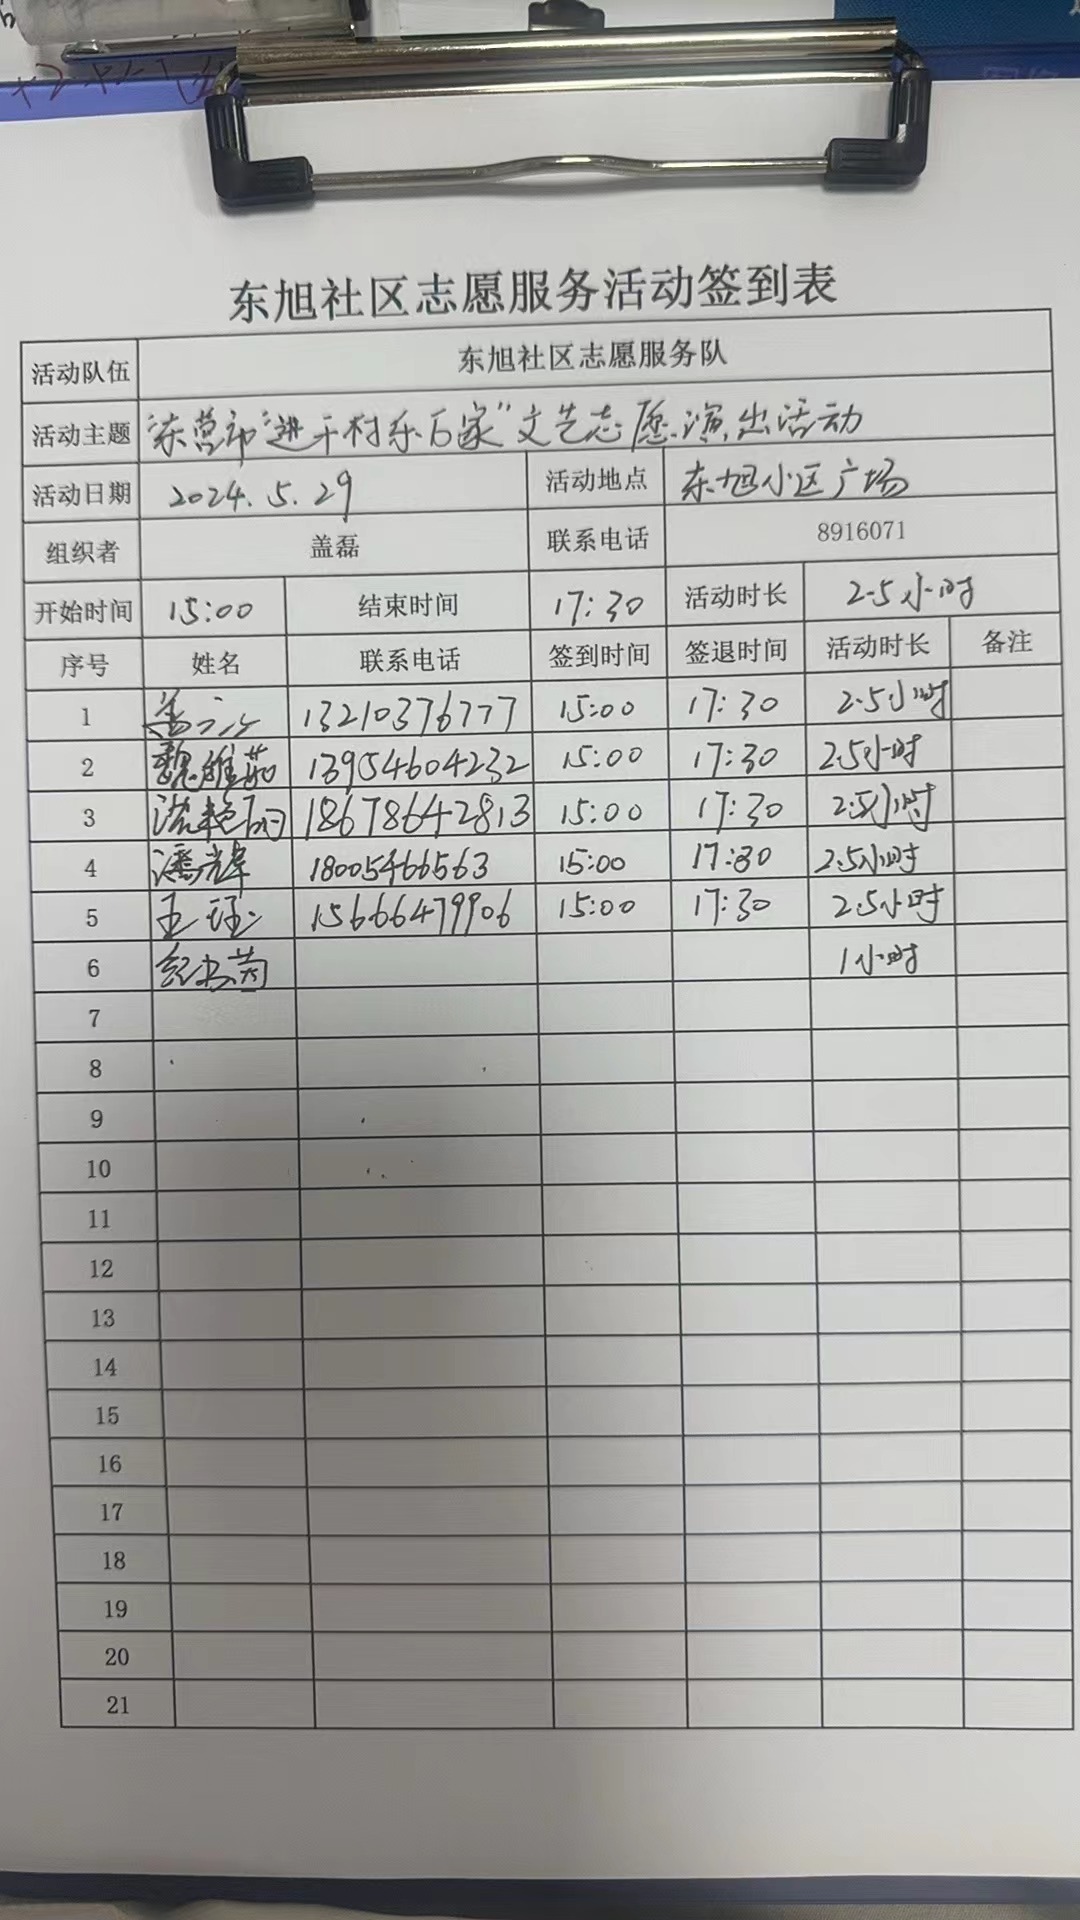 东旭社区志愿服务活动签到表
活动队伍 东旭社区志愿服务队
活动主题 东营市"进千村乐百家"文艺志愿演出活动
活动日期 2024.5.29 活动地点 东旭小区广场
组织者 盖磊 联系电话 8916071
开始时间 15:00 结束时间 17:30 活动时长 2.5小时
序号 姓名 联系电话 签到时间 签退时间 活动时长 备注
1 13210376777 15:00 17:30 2.5小时
2 魏维茹 13954604232 15:00 17:30 2.5小时
3 18678642813 15:00 17:30 2.5小时
4 潘辉 18005466563 15:00 17:30 2.5小时
5 王珏 15666479906 15:00 17:30 2.5小时
6 1小时
7
8
9
10
11
12
13
14
15
16
17
18
19
20
21